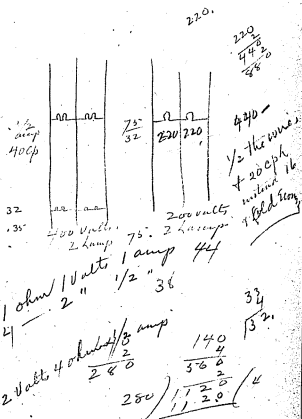 220.
220
2
440
2
880
1/2
amp
40Cp
75
32
220 220
440-
1/2 the wires
+ 20 cph
instead 16
+ Old Econ
32
.35
400 Volts
2 lamp
75.
200 volts
2 lamps
1 ohm 1 Volts 1 amp 44
4 — 2 " 1/2 "
38
33
4
32.
2 Volts 4 ohms 1/2 amp
2
280
140
4
560
2
280 ) 1120 ( 4
1120